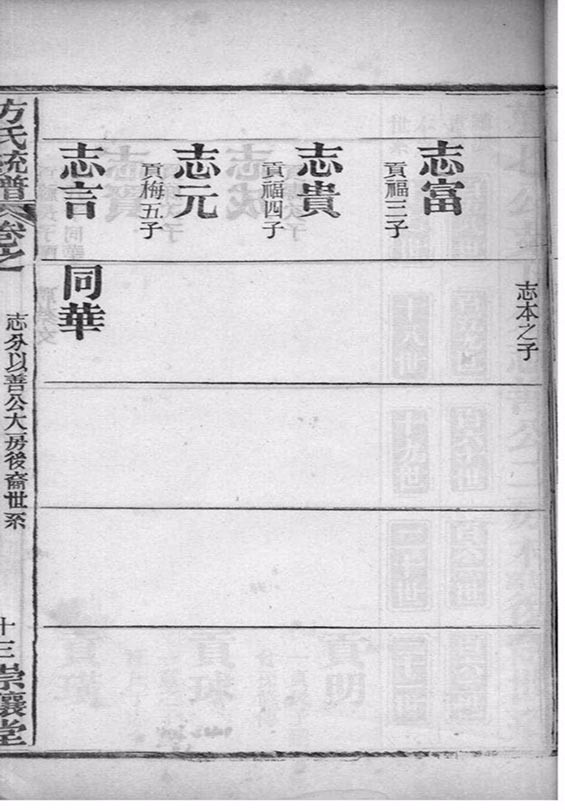 志本之子
志富
貢福三子
志貴
貢福四子
志元
貢梅五子
志言
同華
方氏統譜
卷之
志分以善公大房後裔世系
十三
崇讓堂